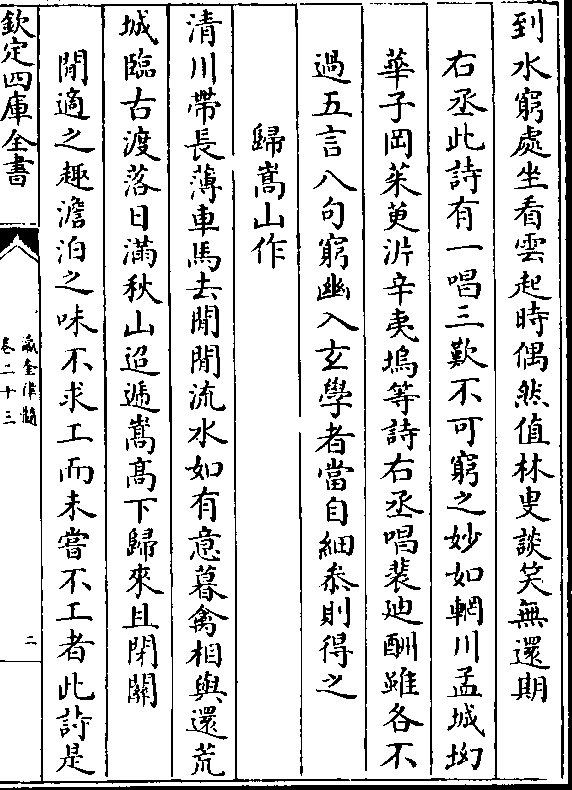 到水窮處坐看雲起時偶然值林叟談笑無還期
右丞此詩有一唱三歎不可窮之妙如輞川孟城坳
華子岡茱萸沜辛夷塢等詩右丞唱裴迪酬雖各不
過五言八句窮幽入玄學者當自細叅則得之
歸嵩山作
清川帶長薄車馬去閒閒流水如有意暮禽相與還荒
城臨古渡落日滿秋山迢遞嵩髙下歸來且閉關
閒適之趣澹泊之味不求工而未嘗不工者此詩是
欽定四庫全書
瀛奎律髓
卷二十三
二